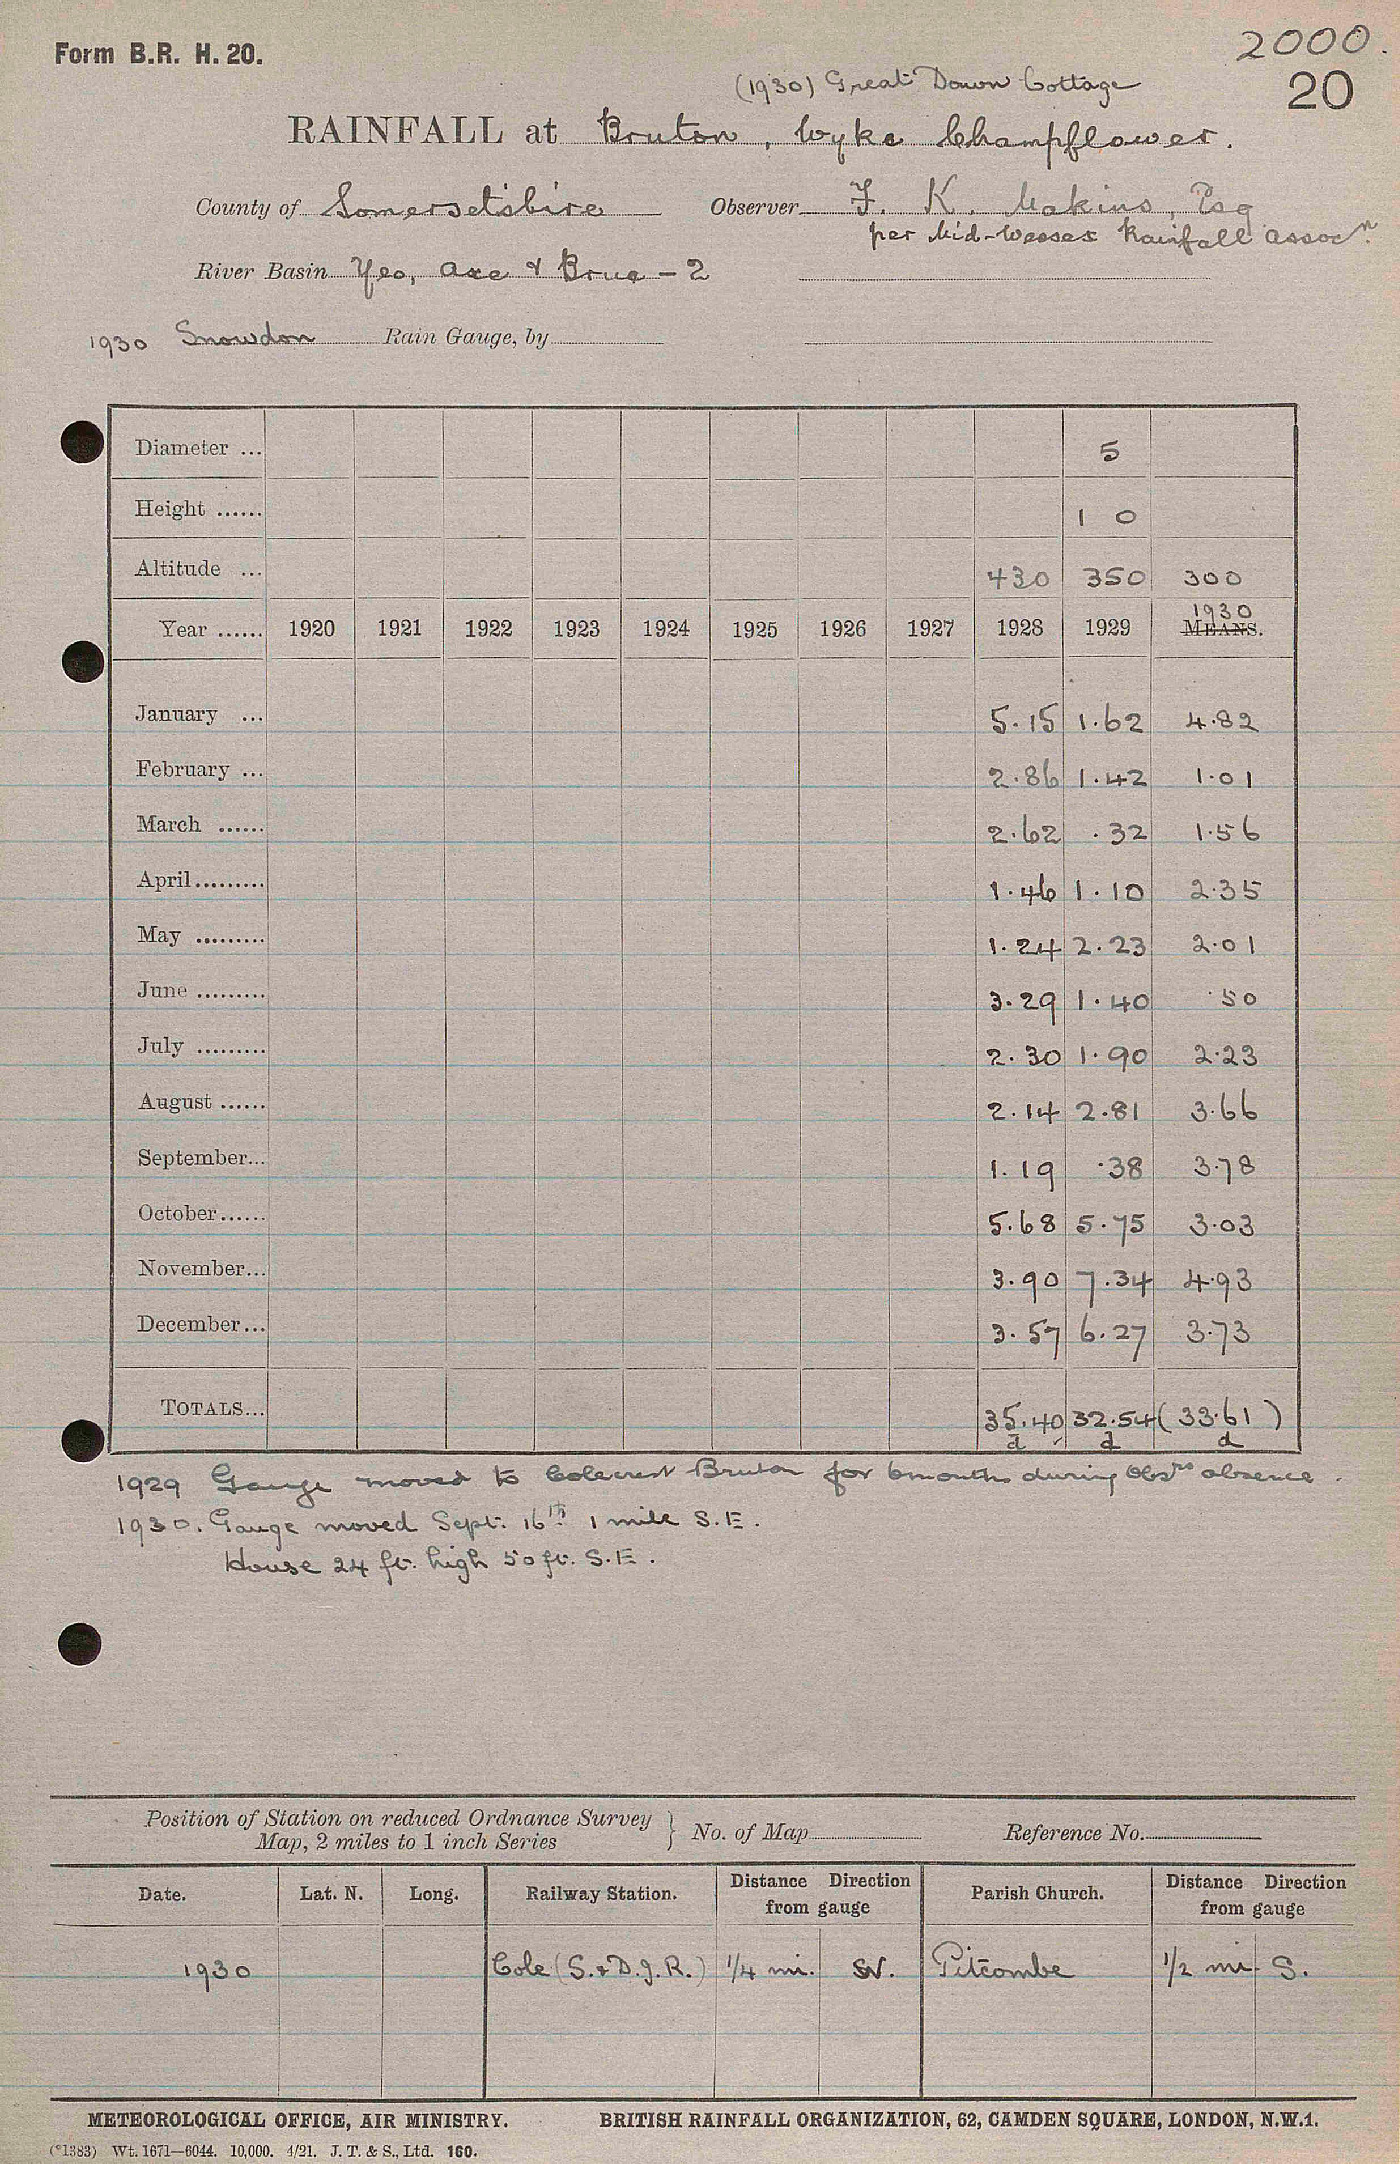 Form B.R. H. 20.
2000.
20
(1930) Great Down Cottage
RAINFALL at Bruton, Wyke Champflower.
County of Somersetshire Observer F. K. Makins, Esq
per Mid-Wessex Rainfall Assocn.
River Basin Yeo, Axe & Brue - 2
1930 Snowdon Rain Gauge, by
Diameter ... 5
Height ...... 1 0
Altitude ... 430 350 300
1930
Year ...... 1920 1921 1922 1923 1924 1925 1926 1927 1928 1929 MEANS.
January ... 5.15 1.62 4.82
February ... 2.86 1.42 1.01
March ...... 2.62 .32 1.56
April......... 1.46 1.10 2.35
May ......... 1.24 2.23 2.01
June ......... 3.29 1.40 .50
July ......... 2.30 1.90 2.23
August ...... 2.14 2.81 3.66
September... 1.19 .38 3.78
October...... 5.68 5.75 3.03
November... 3.90 7.34 4.93
December... 3.57 6.27 3.73
TOTALS... 35.40 32.54 (33.61)
d d d
1929 Gauge moved to Colecrest Bruton for 6 months during Obsrs absence.
1930. Gauge moved Sept. 16th 1 mile S.E.
House 24 ft. high 50 ft. S.E.
Position of Station on reduced Ordnance Survey
Map, 2 miles to 1 inch Series } No. of Map Reference No.
Date. Lat. N. Long. Railway Station. Distance Direction from gauge Parish Church. Distance Direction from gauge
1930 Cole (S. & D. J. R.) 1/4 mi. SW. Pitcombe 1/2 mi. S.
METEOROLOGICAL OFFICE, AIR MINISTRY. BRITISH RAINFALL ORGANIZATION, 62, CAMDEN SQUARE, LONDON, N.W.1.
(*1383) Wt. 1671—6044. 10,000. 4/21. J. T. & S., Ltd. 160.